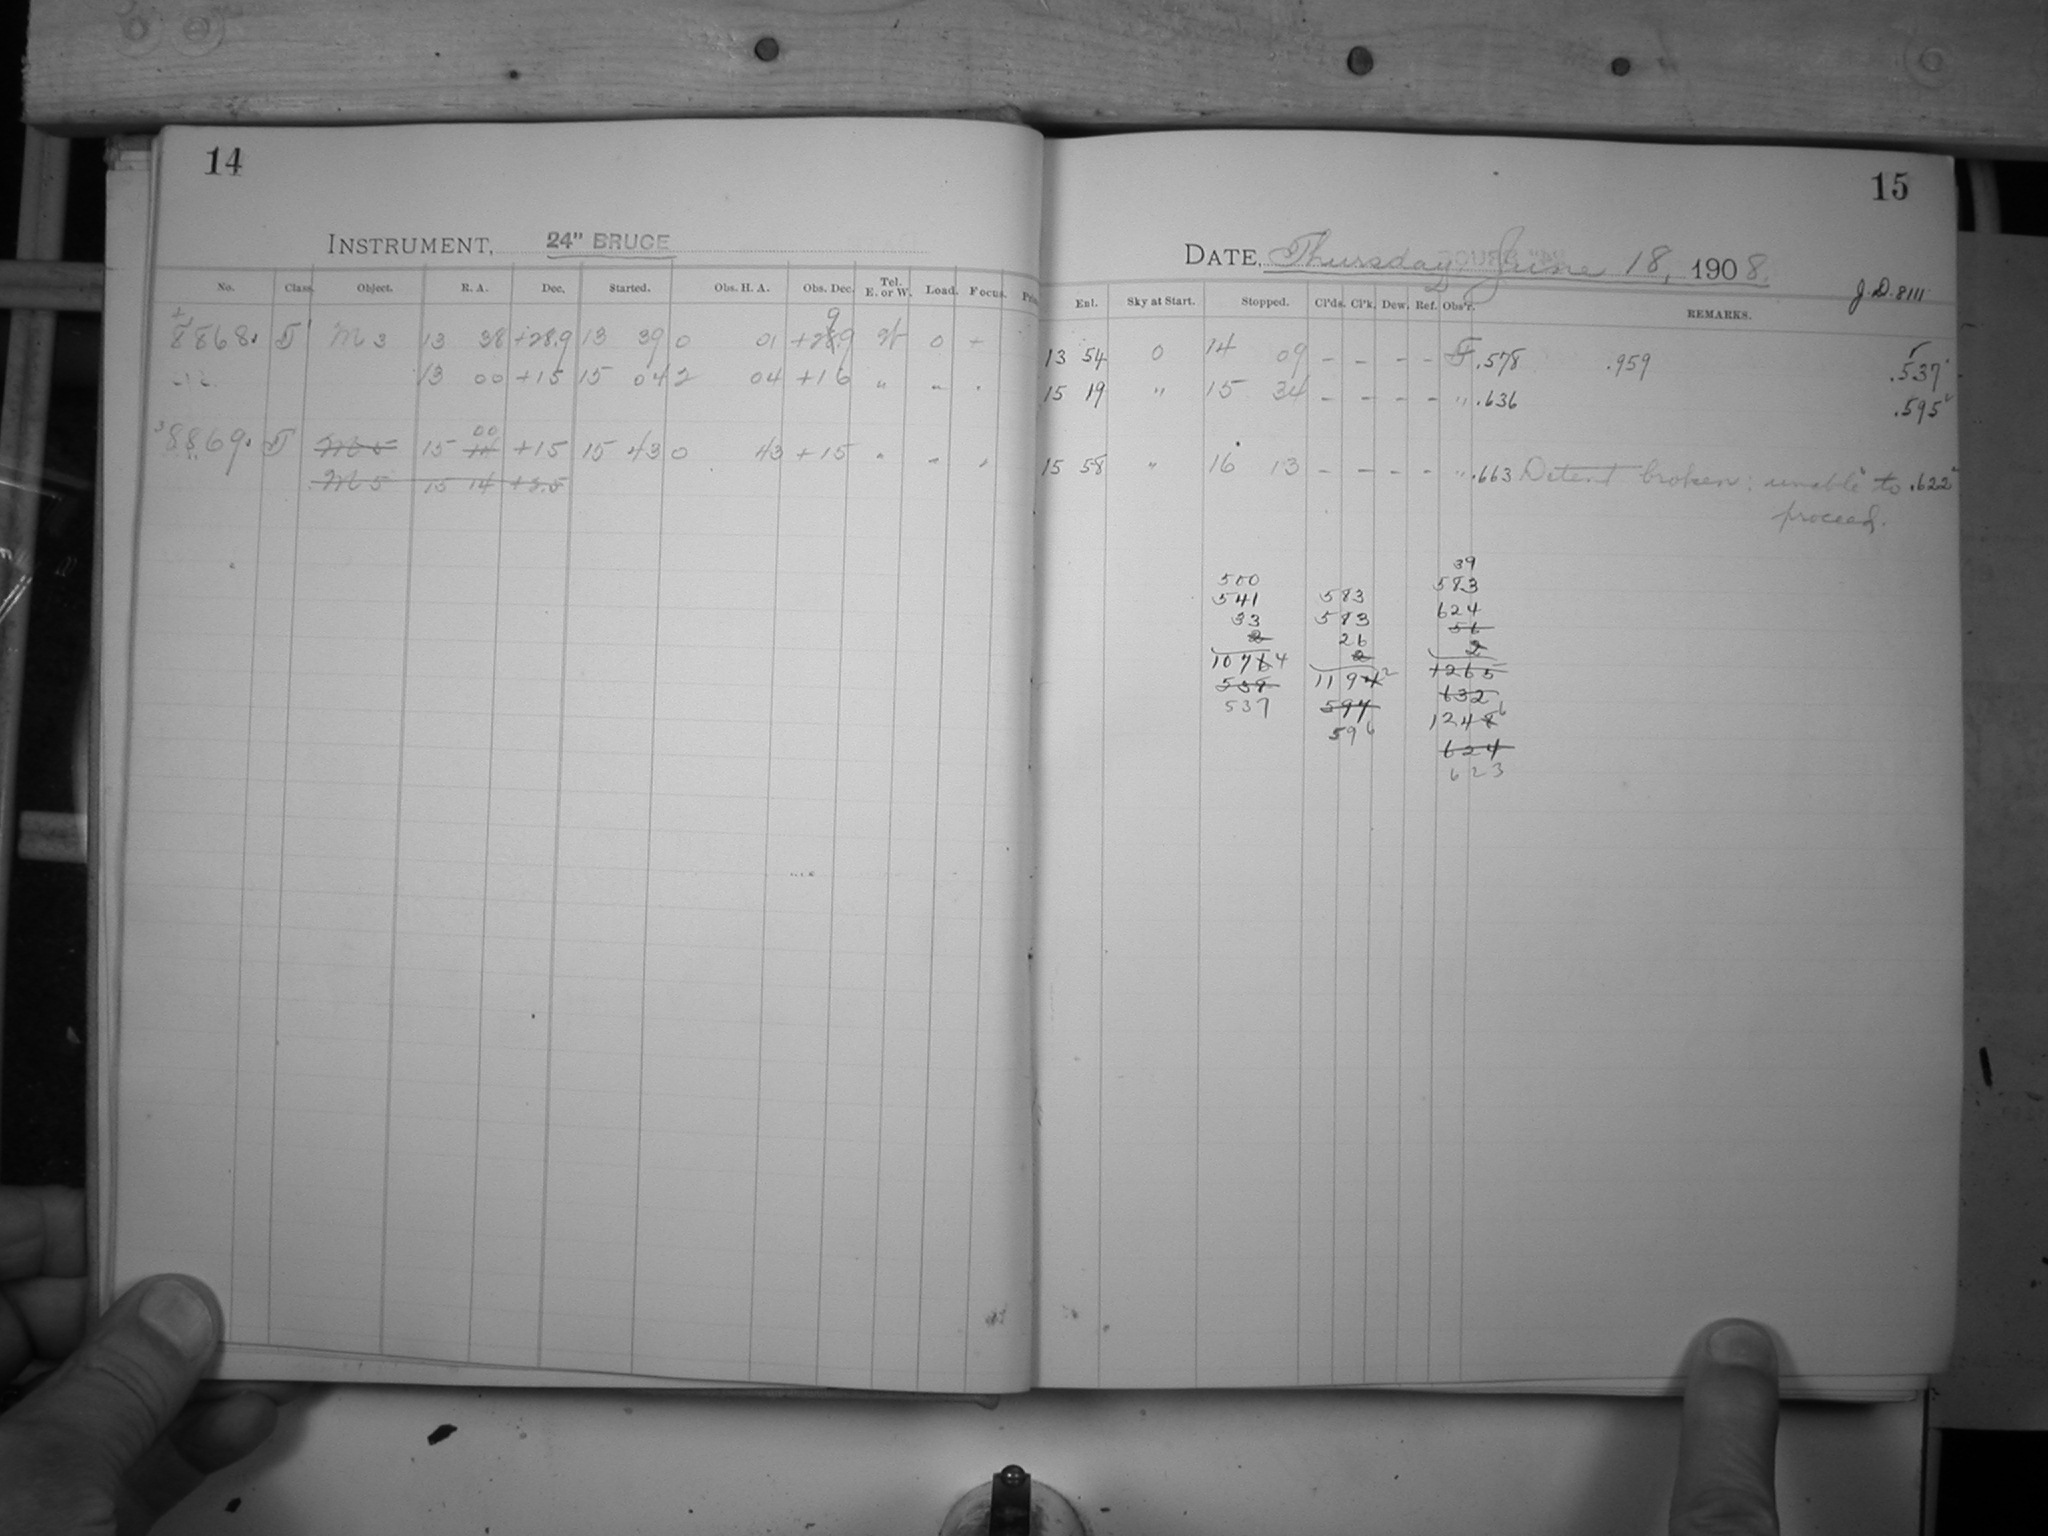 14
INSTRUMENT, 24" BRUCE
No. Class. Object. R. A. Dec. Started. Obs. H. A. Obs. Dec. Tel. E. or W. Load. Focus.
8868. M 3 13 38 +28.9 13 39 0 01 +289 W 0
13 00 +15 15 04 2 04 +16 " "
8869. M 5 15 14 00 +15 15 43 0 43 +15 " "
M 5 15 14 +2.5
15
DATE, Thursday, June 18, 1908.
J.D. 8111
Enl. Sky at Start. Stopped. Cl'ds. Cl'k. Dew. Ref. Obs'r. REMARKS.
13 54 0 14 09 – – – – .578 .959 .537
15 19 " 15 34 – – – – " .636 .595
15 58 " 16 13 – – – – " .663 Detent broken: unable to .622
proceed.
500
541
33
2
1076 4
538
537
583
583
26
2
1194 2
597
596
39
583
624
56
2
1265
632
1248 6
624
623